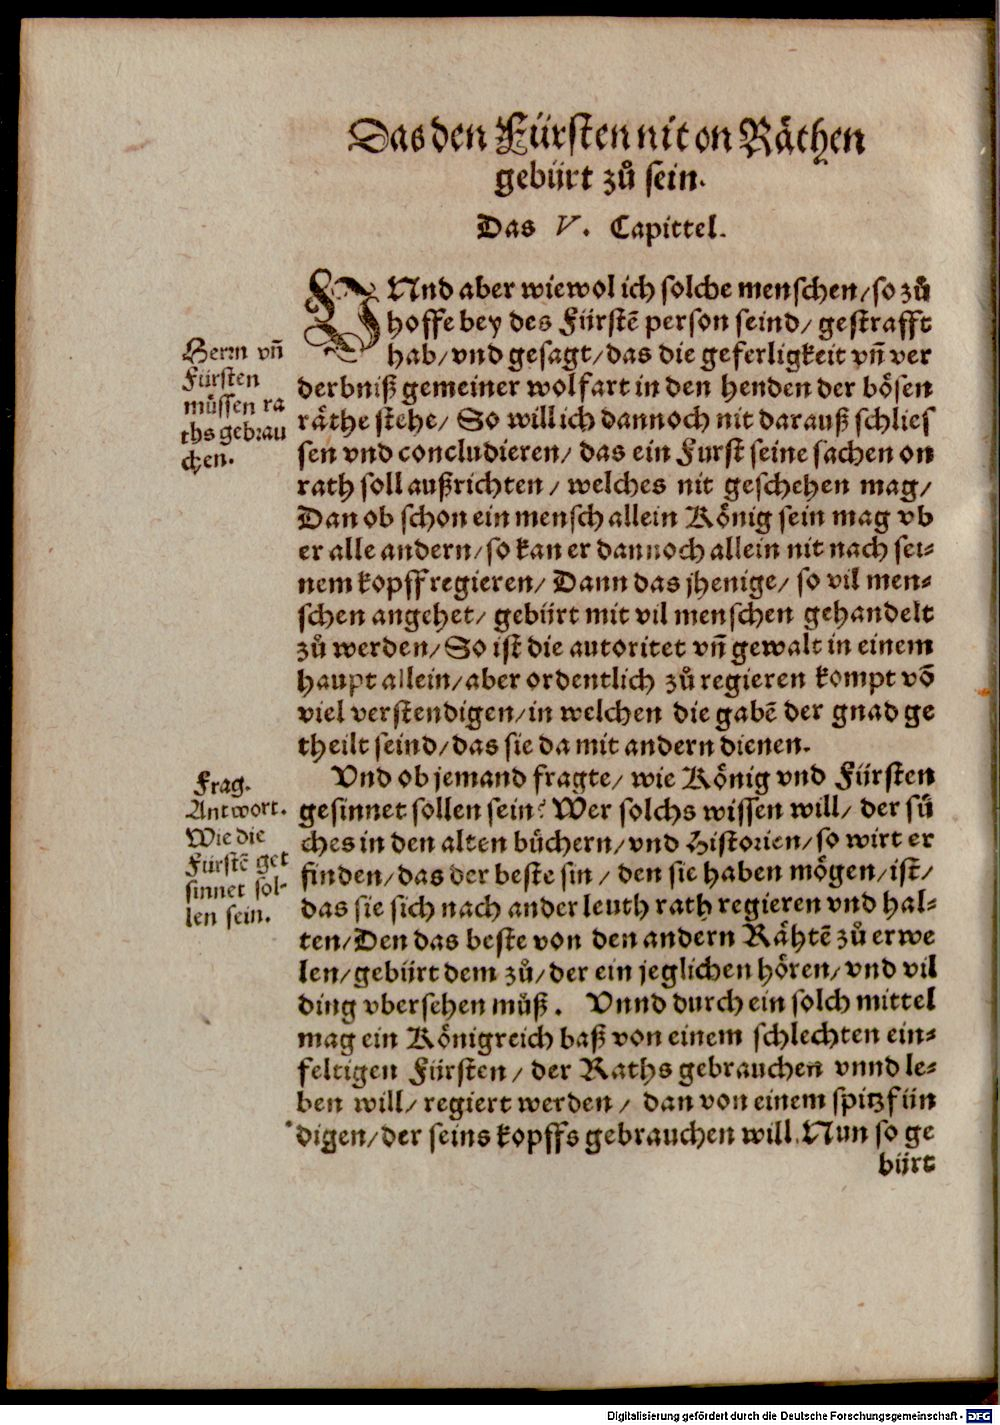 Das den Fürsten nit on Räthen
gebürt zů sein.
Das V. Capittel.
VNnd aber wiewol ich solche menschen/so zů
hoffe bey des Fürstẽ person seind/ gestrafft
hab/vnd gesagt/das die geferligkeit vñ ver
derbniß gemeiner wolfart in den henden der bösen
räthe stehe/ So will ich dannoch nit darauß schlies
sen vnd concludieren/ das ein Furst seine sachen on
rath soll außrichten/ welches nit geschehen mag/
Dan ob schon ein mensch allein König sein mag vb
er alle andern/so kan er dannoch allein nit nach sei⸗
nem kopff regieren/ Dann das jhenige/ so vil men⸗
schen angehet/ gebürt mit vil menschen gehandelt
zů werden/So ist die autoritet vñ gewalt in einem
haupt allein/aber ordentlich zů regieren kompt võ
viel verstendigen/in welchen die gabẽ der gnad ge
theilt seind/das sie da mit andern dienen.
Herrn vñ
Fürsten
müssen ra
ths gebrau
chen.
Vnd ob jemand fragte/ wie König vnd Fürsten
gesinnet sollen sein? Wer solchs wissen will/ der sů
ches in den alten bůchern/vnd Historien/so wirt er
finden/das der beste sin/ den sie haben mögen/ist/
das sie sich nach ander leuth rath regieren vnd hal⸗
ten/Den das beste von den andern Rähtẽ zů erwe
len/gebürt dem zů/der ein jeglichen hören/vnd vil
ding vbersehen můß. Vnnd durch ein solch mittel
mag ein Königreich baß von einem schlechten ein⸗
feltigen Fürsten/ der Raths gebrauchen vnnd le⸗
ben will/ regiert werden/ dan von einem spitzfün
digen/der seins kopffs gebrauchen will. Nun so ge
bürt
Frag.
Antwort.
Wie die
Fürstẽ get
sinnet sol⸗
len sein.
Digitalisierung gefördert durch die Deutsche Forschungsgemeinschaft - DFG